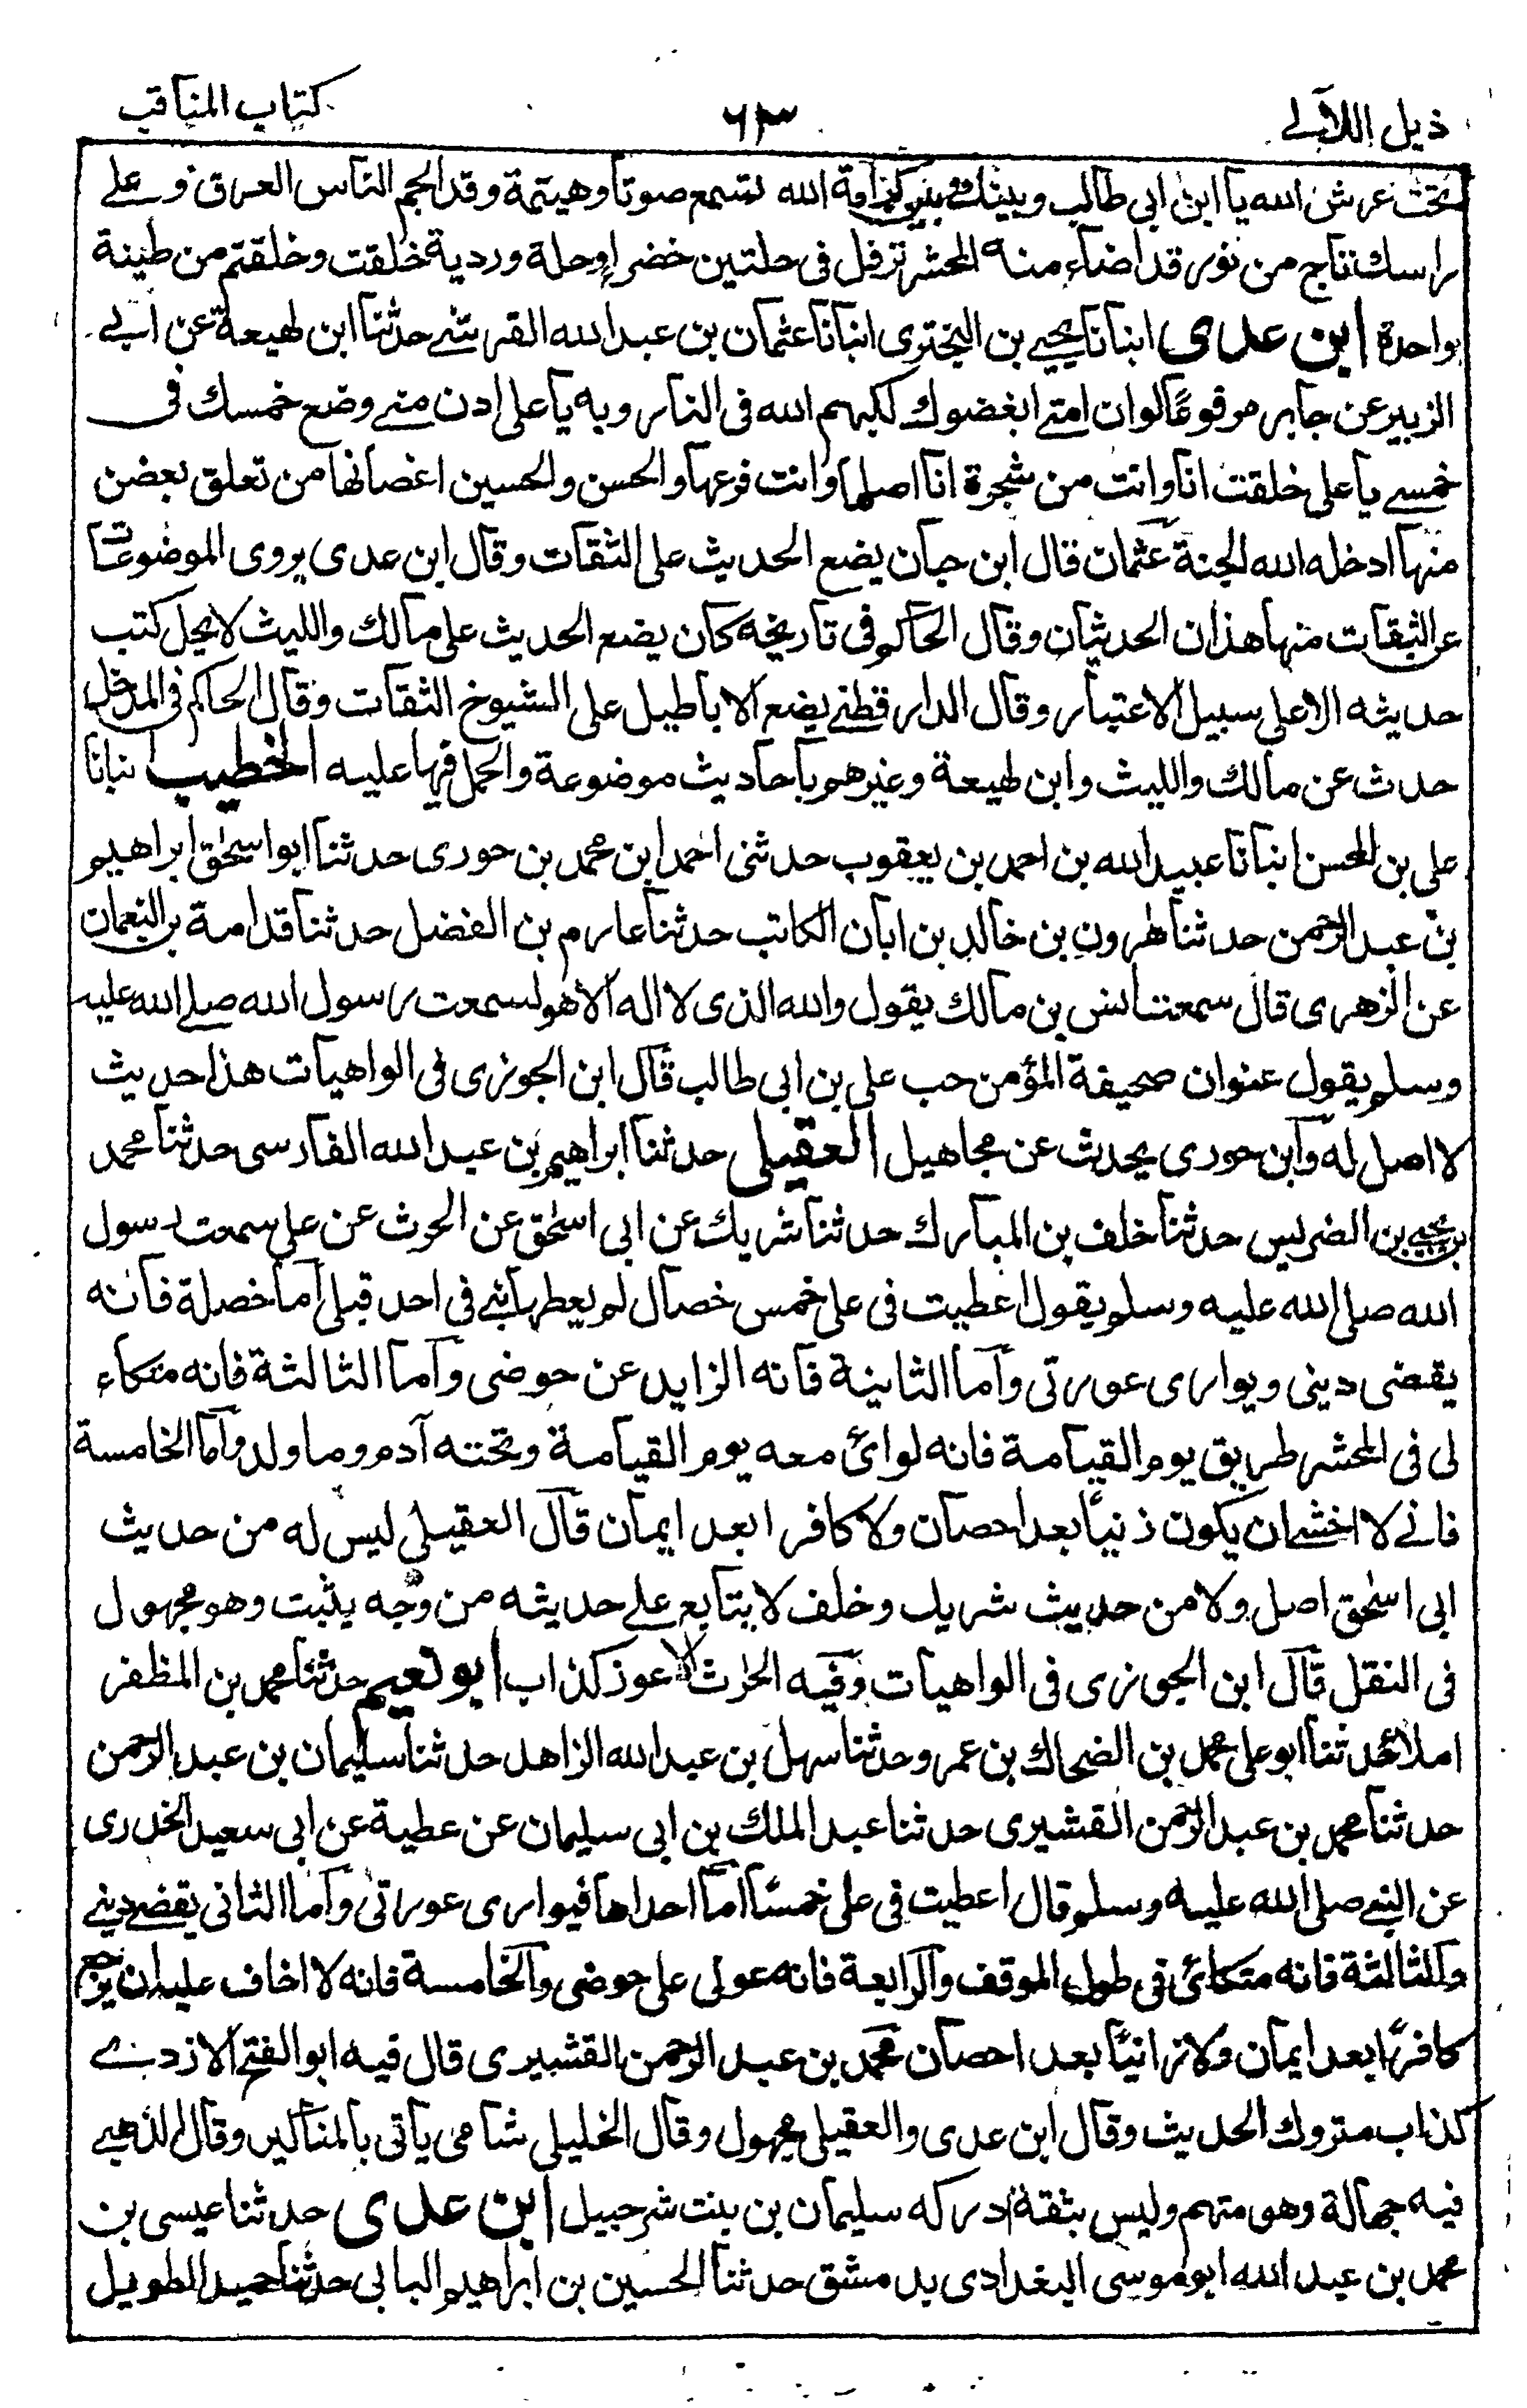 ذيل اللآلے
٦٣
كتاب المناقب
تحت عرش الله يا ابن ابى طالب وبينك وبين كرامة الله تسمع صوتا وهيتمة وقد الجم الناس العرق وعلے
راسك تاج من نور قد اضاء منه المحشر ترفل فى حلتين خضراوحلة وردية خلقت وخلقتم من طينة
واحدة ابن عدى انبانا يحيے بن البخترى انبانا عثمان بن عبد الله القرشے حدثنا ابن لهيعة عن ابے
الزبير عن جابر مرفوعًا لوان امتے ابغضوك لكبهم الله فى النار وبه يا على ادن منے وضع خمسك فى
خمسے يا على خلقت انا وانت من شجرة انا اصلها وانت فرعها والحسن والحسين اغصانها من تعلق بغصن
منها ادخله الله الجنة عثمان قال ابن حبان يضع الحديث على الثقات وقال ابن عدى يروى الموضوعات
عن الثقات منها هذان الحديثان وقال الحاكم فى تاريخه كان يضع الحديث على مالك والليث لايحل كتب
حديثه الاعلى سبيل الاعتبار وقال الدارقطنے يضع الاباطيل على الشيوخ الثقات وقال الحاكم فى المدخل
حدث عن مالك والليث وابن لهيعة وغيرهم باحاديث موضوعة والحمل فيها عليه الخطيب انبانا
على بن المحسن انبانا عبيد الله بن احمد بن يعقوب حدثنى احمد ابن محمد بن حورى حدثنا ابو اسحٰق ابراهيم
بن عبد الرحمن حدثنا هٰرون بن خالد بن ابان الكاتب حدثنا عارم بن الفضل حدثنا قدامة بن النعمان
عن الزهرى قال سمعت انس بن مالك يقول والله الذى لا اله الا هو لسمعت رسول الله صلے الله عليه
وسلم يقول عنوان صحيفة المؤمن حب على بن ابى طالب قال ابن الجوزى فى الواهيات هذا حديث
لا اصل له وابن حورى يحدث عن مجاهيل العقيلى حدثنا ابراهيم بن عبد الله الفارسى حدثنا محمد
بن يحيے بن الضريس حدثنا خلف بن المبارك حدثنا شريك عن ابى اسحٰق عن الحرث عن على سمعت رسول
الله صلى الله عليه وسلم يقول اعطيت فى على خمس خصال لم يعطها نبے فى احد قبلى اما خصلة فانه
يقضى دينى ويوارى عورتى واما الثانية فانه الزايد عن حوضى واما الثالثة فانه متكاء
لى فى المحشر طريق يوم القيامة فانه لوائ معه يوم القيامة وتحته آدم وما ولد واما الخامسة
فانے لا اخشے ان يكون زنيًا بعد احصان ولا كافرا بعد ايمان قال العقيلى ليس له من حديث
ابى اسحٰق اصل ولا من حديث شريك وخلف لا يتابع علے حديثه من وجه يثبت وهو مجهول
فى النقل قال ابن الجوزى فى الواهيات وفيه الحٰرث الاعور كذاب ابو نعيم حدثنا محمد بن المظفر
املاء حدثنا ابو على محمد بن الضحاك بن عمر وحدثنا سهل بن عبد الله الزاهد حدثنا سليمان بن عبد الرحمن
حدثنا محمد بن عبد الرحمن القشيرى حدثنا عبد الملك بن ابى سليمان عن عطية عن ابى سعيد الخدرى
عن النبے صلى الله عليه وسلم قال اعطيت فى على خمسًا اما احداها فيوارى عوراتى واما الثانى يقضے دينے
والثالثة فانه متكائ فى طول الموقف والرابعة فانه عولى على حوضى والخامسة فانه لا اخاف عليه ان يرجع
كافرًا بعد ايمان ولا زانيًا بعد احصان محمد بن عبد الرحمن القشيرى قال فيه ابو الفتح الازدے
كذاب متروك الحديث وقال ابن عدى والعقيلى مجهول وقال الخليلى شامى ياتى بالمناكير وقال الذهبے
فيه جهالة وهو متهم وليس بثقة ادركه سليمان بن بنت شرحبيل ابن عدى حدثنا عيسى بن
محمد بن عبد الله ابو موسى البغدادى بدمشق حدثنا الحسين بن ابراهيم البابى حدثنا حميد الطويل